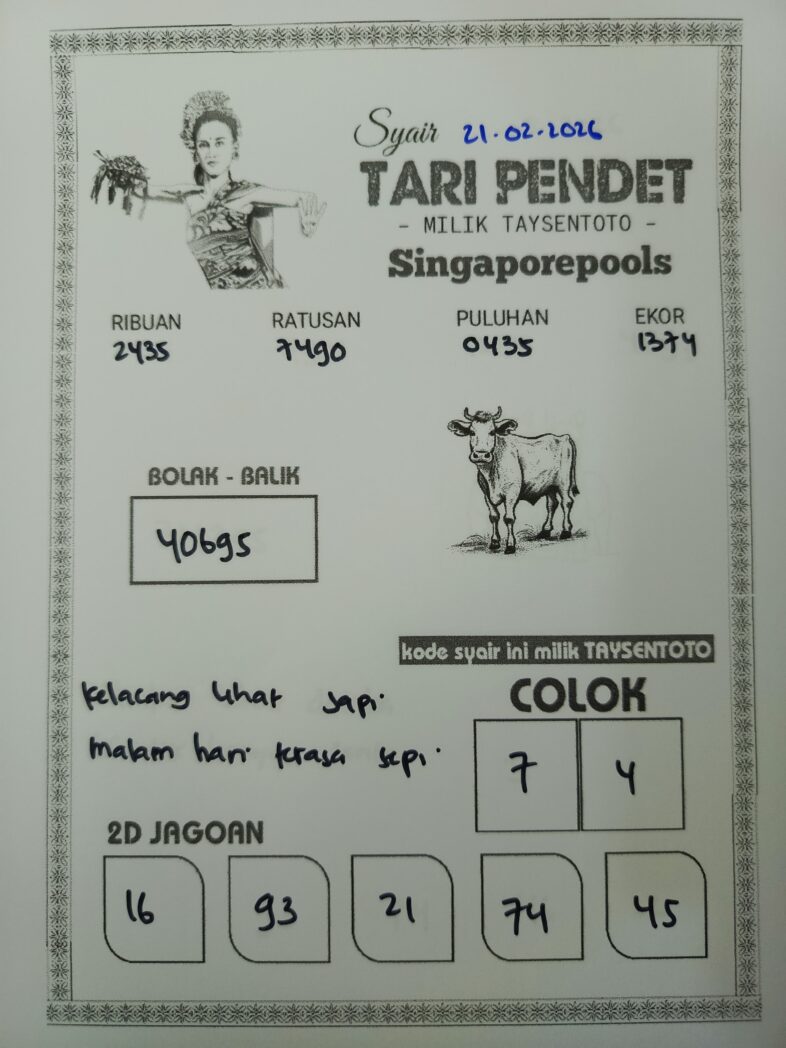 Syair 21.02.2026
TARI PENDET
- MILIK TAYSENTOTO -
Singaporepools
RIBUAN RATUSAN PULUHAN EKOR
2435 7490 0435 1374
BOLAK - BALIK
40695
kode syair ini milik TAYSENTOTO
kelacang lihat sapi
malam hari terasa sepi
COLOK
7 4
2D JAGOAN
16 93 21 74 45